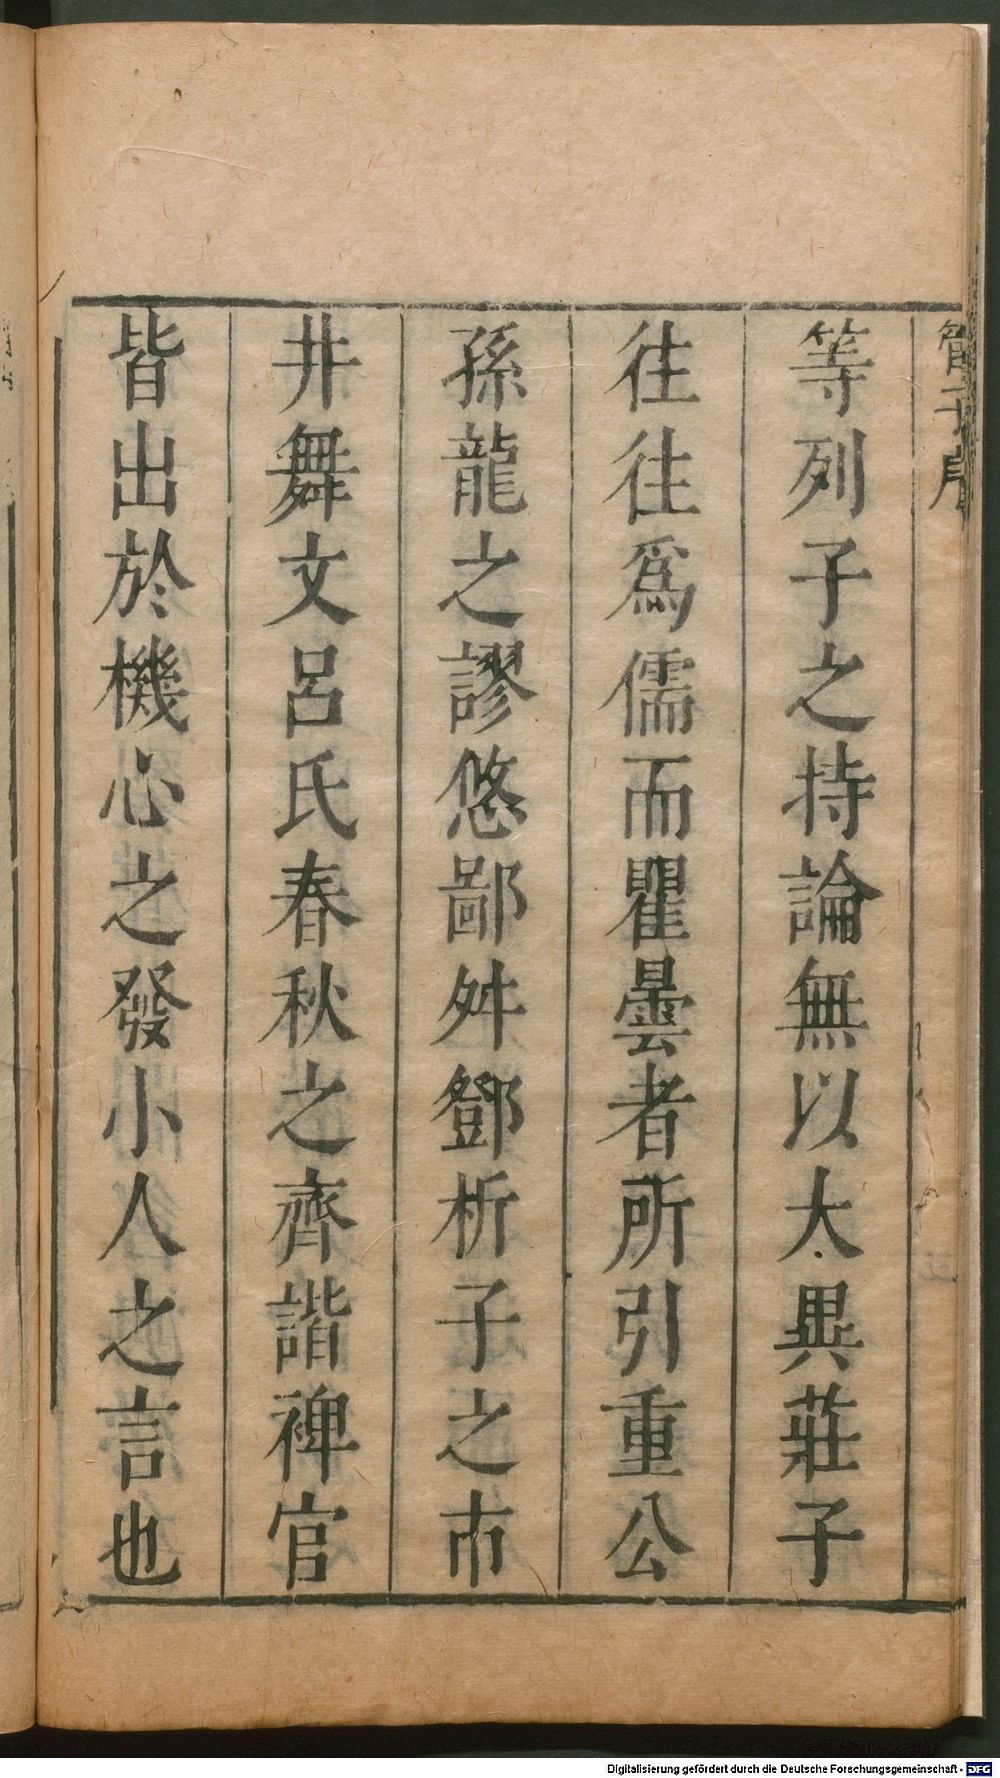 管子序
等列子之持論無以大異莊子
往往爲儒而瞿曇者所引重公
孫龍之謬悠鄙舛鄧析子之市
井舞文呂氏春秋之齊諧稗官
皆出於機心之發小人之言也
Digitalisierung gefördert durch die Deutsche Forschungsgemeinschaft - DFG